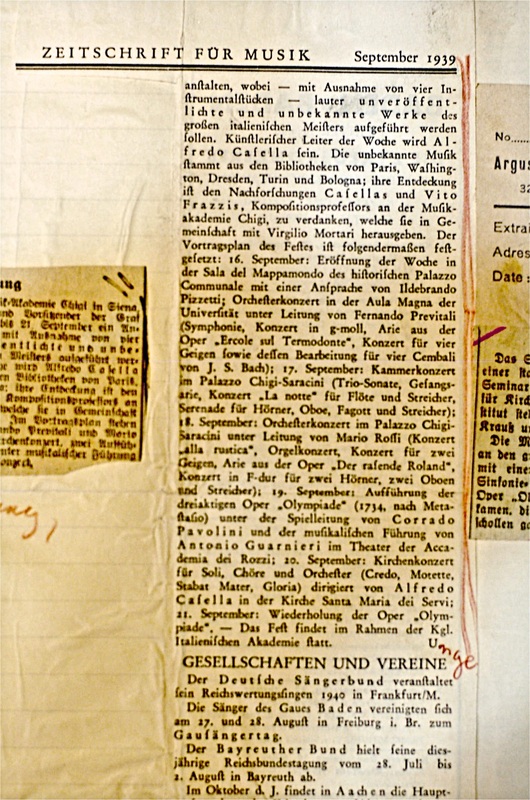 ZEITSCHRIFT FÜR MUSIK September 1939
anſtalten, wobei — mit Ausnahme von vier In-
ſtrumentalſtücken — lauter unveröffent-
lichte und unbekannte Werke des
großen italieniſchen Meiſters aufgeführt werden
ſollen. Künſtleriſcher Leiter der Woche wird Al-
fredo Caſella ſein. Die unbekannte Muſik
ſtammt aus den Bibliotheken von Paris, Waſhing-
ton, Dresden, Turin und Bologna; ihre Entdeckung
iſt den Nachforſchungen Caſellas und Vito
Frazzis, Kompoſitionsprofeſſors an der Muſik-
akademie Chigi, zu verdanken, welche ſie in Ge-
meinſchaft mit Virgilio Mortari herausgeben. Der
Vortragsplan des Feſtes iſt folgendermaßen feſt-
geſetzt: 16. September: Eröffnung der Woche in
der Sala del Mappamondo des hiſtoriſchen Palazzo
Communale mit einer Anſprache von Ildebrando
Pizzetti; Orcheſterkonzert in der Aula Magna der
Univerſität unter Leitung von Fernando Previtali
(Symphonie, Konzert in g-moll, Arie aus der
Oper „Ercole sul Termodonte", Konzert für vier
Geigen ſowie deſſen Bearbeitung für vier Cembali
von J. S. Bach); 17. September: Kammerkonzert
im Palazzo Chigi-Saracini (Trio-Sonate, Geſangs-
arie, Konzert „La notte" für Flöte und Streicher,
Serenade für Hörner, Oboe, Fagott und Streicher);
18. September: Orcheſterkonzert im Palazzo Chigi-
Saracini unter Leitung von Mario Roſſi (Konzert
„alla ruſtica", Orgelkonzert, Konzert für zwei
Geigen, Arie aus der Oper „Der raſende Roland",
Konzert in F-dur für zwei Hörner, zwei Oboen
und Streicher); 19. September: Aufführung der
dreiaktigen Oper „Olympiade" (1734, nach Meta-
ſtaſio) unter der Spielleitung von Corrado
Pavolini und der muſikaliſchen Führung von
Antonio Guarnieri im Theater der Acca-
demia dei Rozzi; 20. September: Kirchenkonzert
für Soli, Chöre und Orcheſter (Credo, Motette,
Stabat Mater, Gloria) dirigiert von Alfredo
Caſella in der Kirche Santa Maria dei Servi;
21. September: Wiederholung der Oper „Olym-
piade". — Das Feſt findet im Rahmen der Kgl.
Italieniſchen Akademie ſtatt. Unge
GESELLSCHAFTEN UND VEREINE
Der Deutſche Sängerbund veranſtaltet
ſein Reichswertungsſingen 1940 in Frankfurt/M.
Die Sänger des Gaues Baden vereinigten ſich
am 27. und 28. Auguſt in Freiburg i. Br. zum
Gauſängertag.
Der Bayreuther Bund hielt ſeine dies-
jährige Reichsbundestagung vom 28. Juli bis
2. Auguſt in Bayreuth ab.
Im Oktober d. J. findet in Aachen die Haupt-
ung
ik-Akademie Chigi in Siena,
und Vorſitzender der Graf
bis 21. September ein An-
mit Ausnahme von vier
entlichte und unbe-
Meiſters aufgeführt wer-
e wird Alfredo Caſella
en Bibliotheken von Paris,
Kompoſitionsprofeſſors an
welche ſie in Gemeinſchaft
Im Vortragsplan ſtehen
ando Previtali und Mario
rchenkonzert, zwei Auffüh-
unter muſikaliſcher Führung
onzert.
No.
Argus
32
Extrai
Adres
Date :
Das S
alfred Ka
Seminar
für Kirch
ſtitut ſteh
Krauß u
Die M
an den g
mit eine
Sinfonie-
Oper „Ol
kamen, di
ſchollen ga